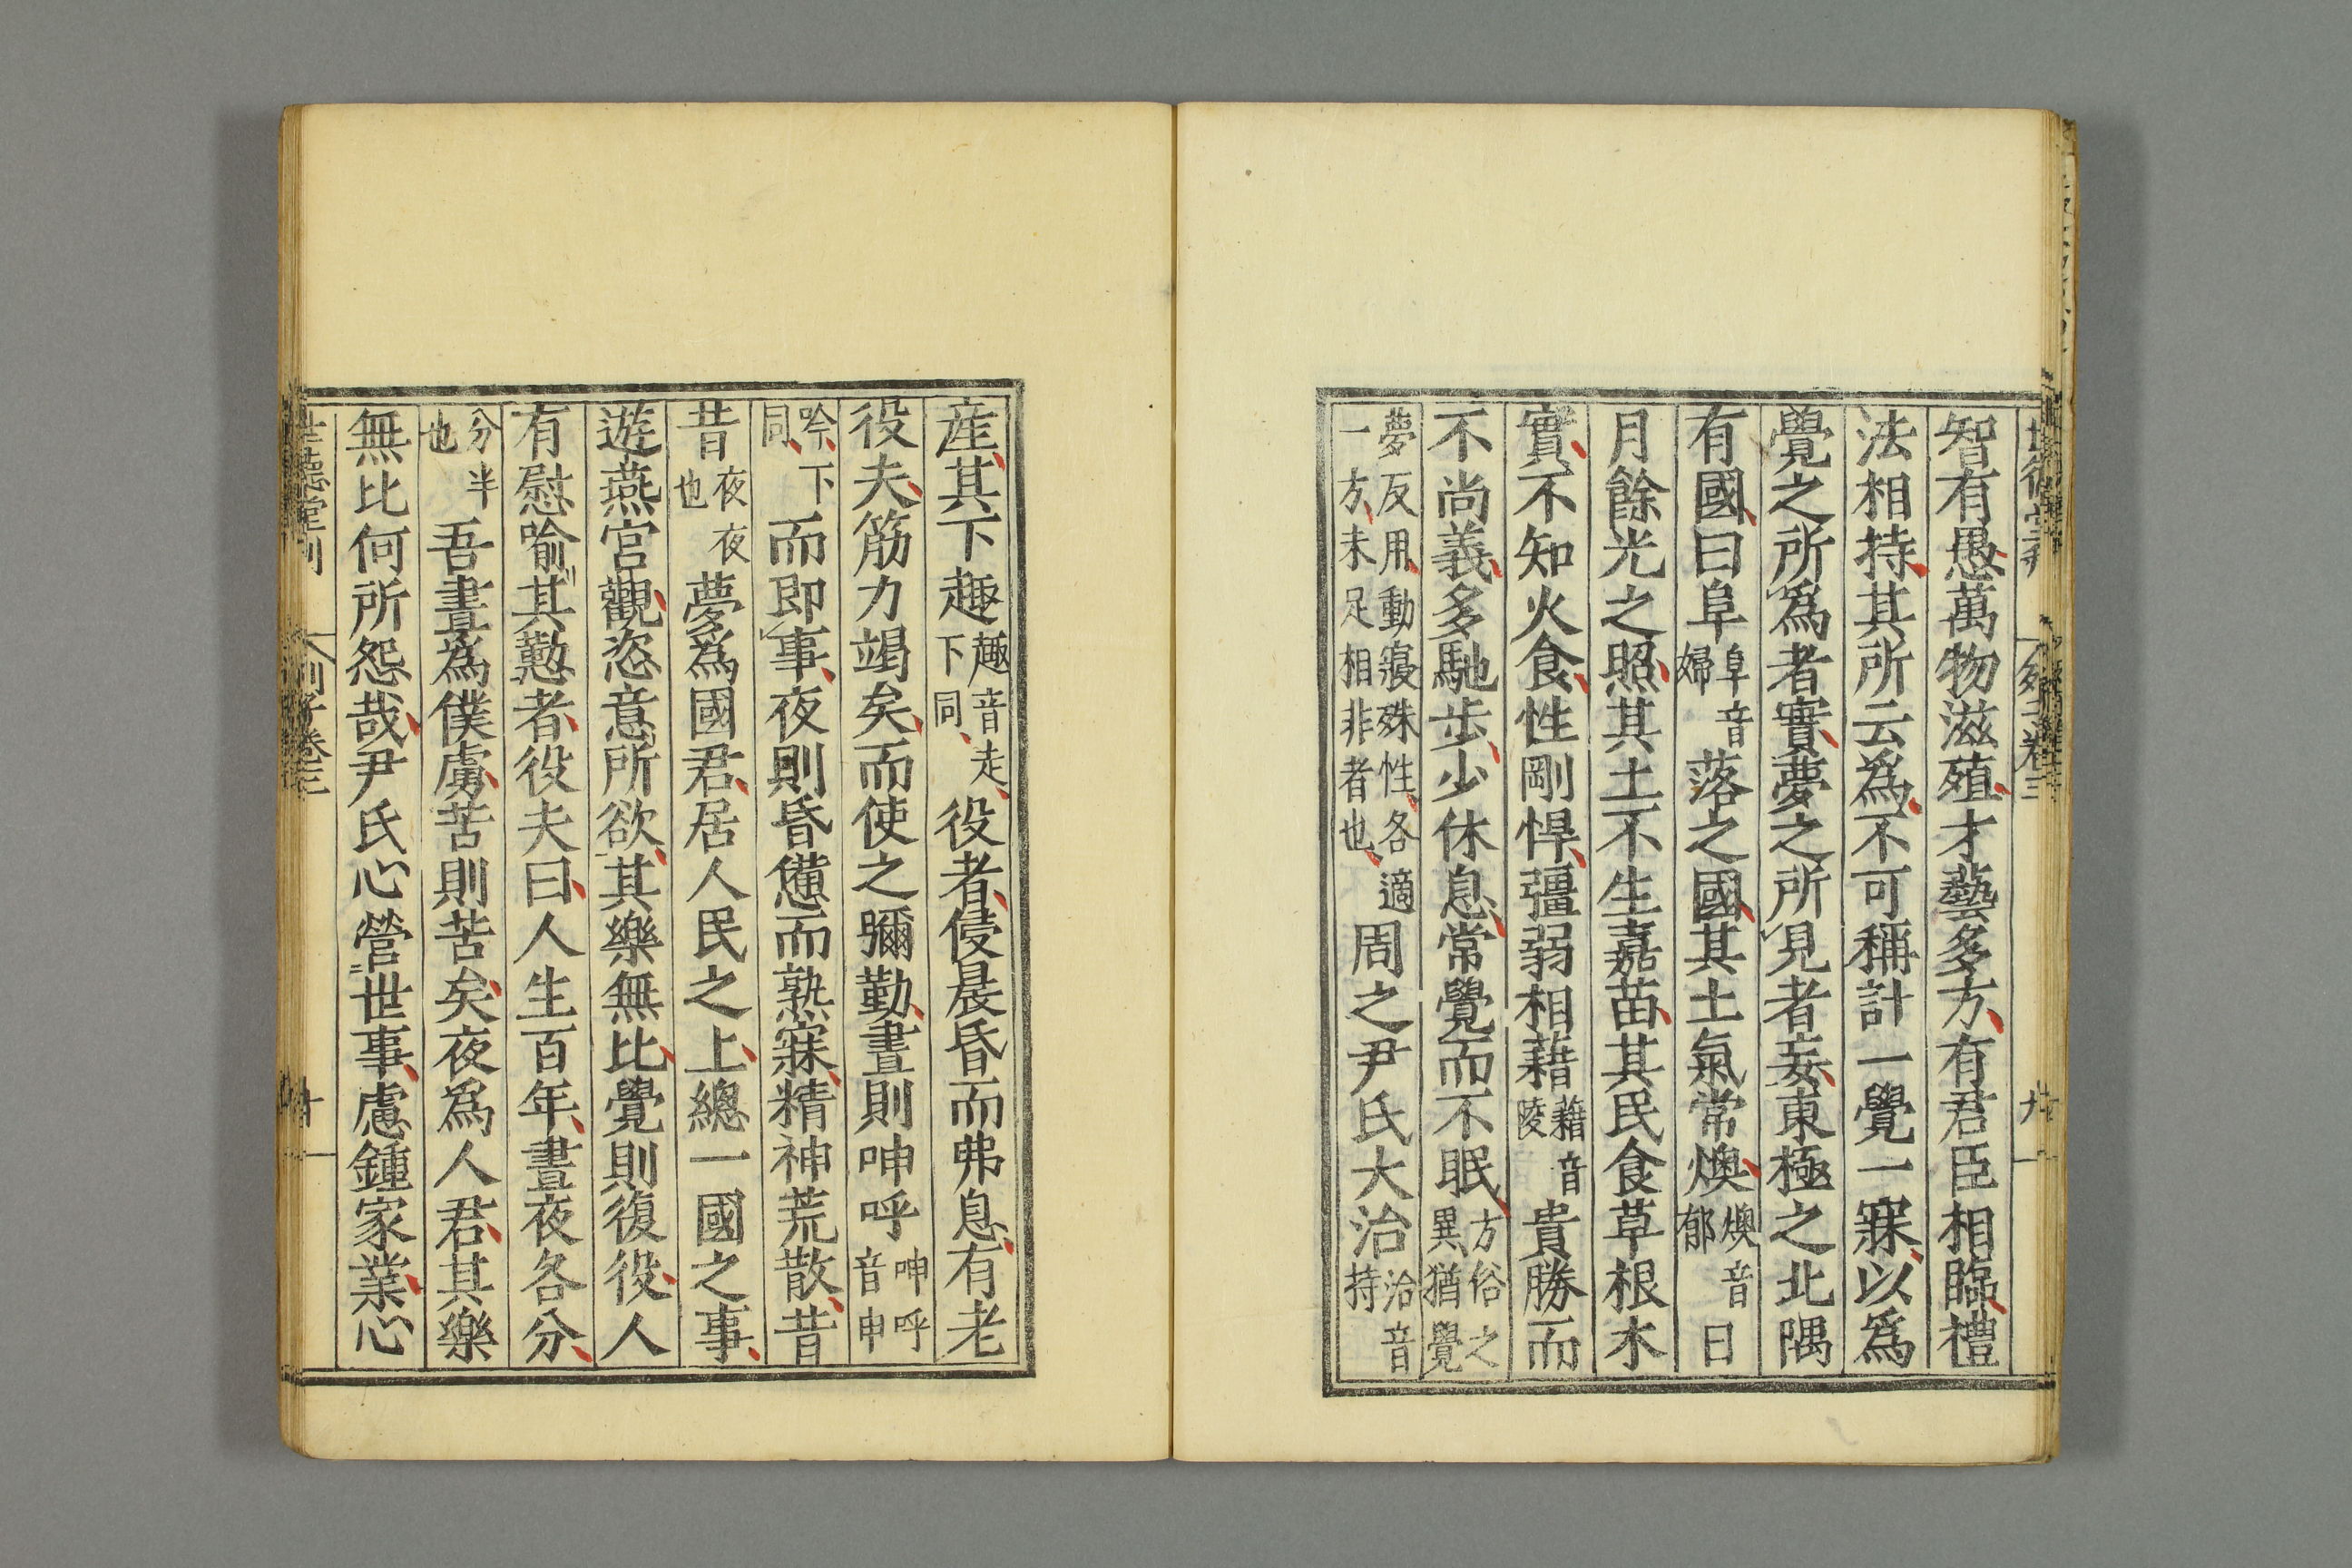 智有愚萬物滋殖才藝多方有君臣相臨禮
法相持其所云爲不可稱計一覺一寐以爲
覺之所爲者實夢之所見者妄東極之北隅
有國曰阜阜音婦落之國其土氣常燠燠音郁日
月餘光之照其土不生嘉苗其民食草根木
實不知火食性剛悍彊弱相藉藉音陵貴勝而
不尚義多馳步少休息常覺而不眠方俗之異猶覺
夢反用動寢殊性各適一方未足相非者也周之尹氏大治治音持
産其下趣趣音走下同役者侵晨昏而弗息有老
役夫筋力竭矣而使之彌勤晝則呻呼呻呼音申
吟下同而即事夜則昏憊而熟寐精神荒散昔
昔夜夜也夢爲國君居人民之上總一國之事
遊燕宮觀恣意所欲其樂無比覺則復役人
有慰喻其懃者役夫曰人生百年晝夜各分
分半也吾晝爲僕虜苦則苦矣夜爲人君其樂
無比何所怨哉尹氏心營世事慮鍾家業心
世德堂刊 列子卷三 十